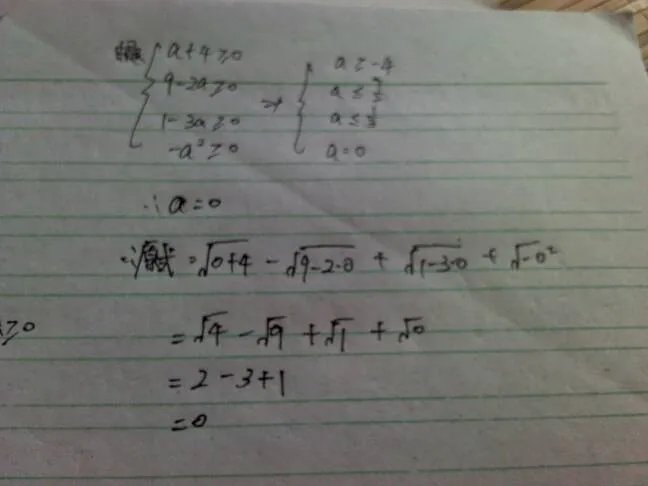 a+4≥0
9-2a≥0
1-3a≥0
-a²≥0
⇒
a≥-4
a≤
a≤1/3
a=0
∴a=0
∴原式=√(0+4) - √(9-2·0) + √(1-3·0) + √(-0²)
≥0
=√4-√9+√1+√0
=2-3+1
=0